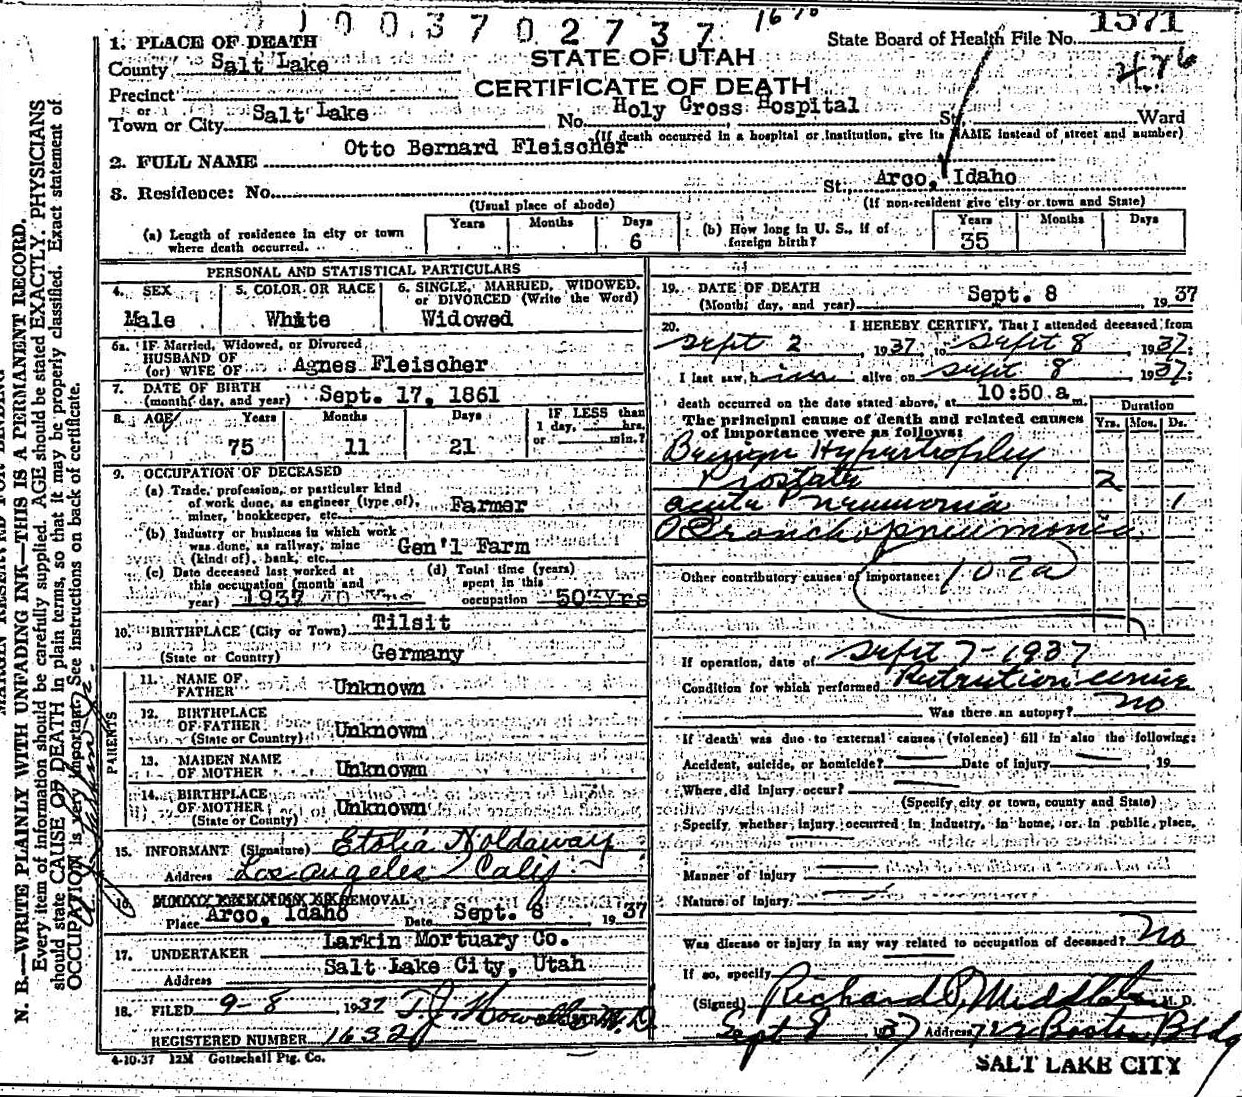 1003702737 1670 1571
1. PLACE OF DEATH State Board of Health File No.
County Salt Lake STATE OF UTAH 476
Precinct CERTIFICATE OF DEATH
or
Town or City Salt Lake No. Holy Cross Hospital St. Ward
(If death occurred in a hospital or institution, give its NAME instead of street and number)
2. FULL NAME Otto Bernard Fleischer
3. Residence: No. St., Arco, Idaho
(Usual place of abode) (If non-resident give city or town and State)
(a) Length of residence in city or town where death occurred. Years Months Days 6
(b) How long in U. S., if of foreign birth? Years 35 Months Days
PERSONAL AND STATISTICAL PARTICULARS
4. SEX Male
5. COLOR OR RACE White
6. SINGLE, MARRIED, WIDOWED, or DIVORCED (Write the Word) Widowed
6a. IF Married, Widowed, or Divorced
HUSBAND OF
(or) WIFE OF Agnes Fleischer
7. DATE OF BIRTH
(month, day, and year) Sept. 17, 1861
8. AGE Years 75 Months 11 Days 21 IF LESS than 1 day, hrs. or min.?
9. OCCUPATION OF DECEASED
(a) Trade, profession, or particular kind
of work done, as engineer (type of),
miner, bookkeeper, etc. Farmer
(b) Industry or business in which work
was done, as railway, mine
(kind of), bank, etc. Gen'l Farm
(c) Date deceased last worked at
this occupation (month and
year) 1937
(d) Total time (years)
spent in this
occupation 50 Yrs
10. BIRTHPLACE (City or Town) Tilsit
(State or Country) Germany
PARENTS
11. NAME OF
FATHER Unknown
12. BIRTHPLACE
OF FATHER
(State or Country) Unknown
13. MAIDEN NAME
OF MOTHER Unknown
14. BIRTHPLACE
OF MOTHER
(State or Country) Unknown
15. INFORMANT (Signature) Etolia Holdaway
Address Los Angeles Calif
16. REMOVAL
Place Arco, Idaho Date Sept. 8 1937
17. UNDERTAKER Larkin Mortuary Co.
Address Salt Lake City, Utah
18. FILED 9-8, 1937 T.J. Howells M.D.
REGISTERED NUMBER 1632
4-10-37 12M Gottschall Ptg. Co.
19. DATE OF DEATH
(Month, day, and year) Sept. 8, 1937
20. I HEREBY CERTIFY, That I attended deceased from
Sept 2, 1937, to Sept 8, 1937:
I last saw him alive on Sept 8, 1937:
death occurred on the date stated above, at 10:50 a.m.
The principal cause of death and related causes
of importance were as follows:
Duration
Yrs. Mos. Ds.
Benign Hypertrophy
Prostate 2
acute Pneumonia 1
Bronchopneumonia
Other contributory causes of importance: 102a
If operation, date of Sept 7-1937
Condition for which performed
Was there an autopsy? no
If death was due to external causes (violence) fill in also the following:
Accident, suicide, or homicide? Date of injury 19
Where did injury occur?
(Specify city or town, county and State)
Specify whether injury occurred in industry, in home, or in public place,
Manner of injury
Nature of injury
Was disease or injury in any way related to occupation of deceased? No
If so, specify
(Signed) Richard P. Middleton M. D.
Sept 8 1937 Address Boston Bldg
SALT LAKE CITY
N. B.—WRITE PLAINLY WITH UNFADING INK—THIS IS A PERMANENT RECORD.
Every item of information should be carefully supplied. AGE should be stated EXACTLY. PHYSICIANS
should state CAUSE OF DEATH in plain terms, so that it may be properly classified. Exact statement of
OCCUPATION is very important. See instructions on back of certificate.